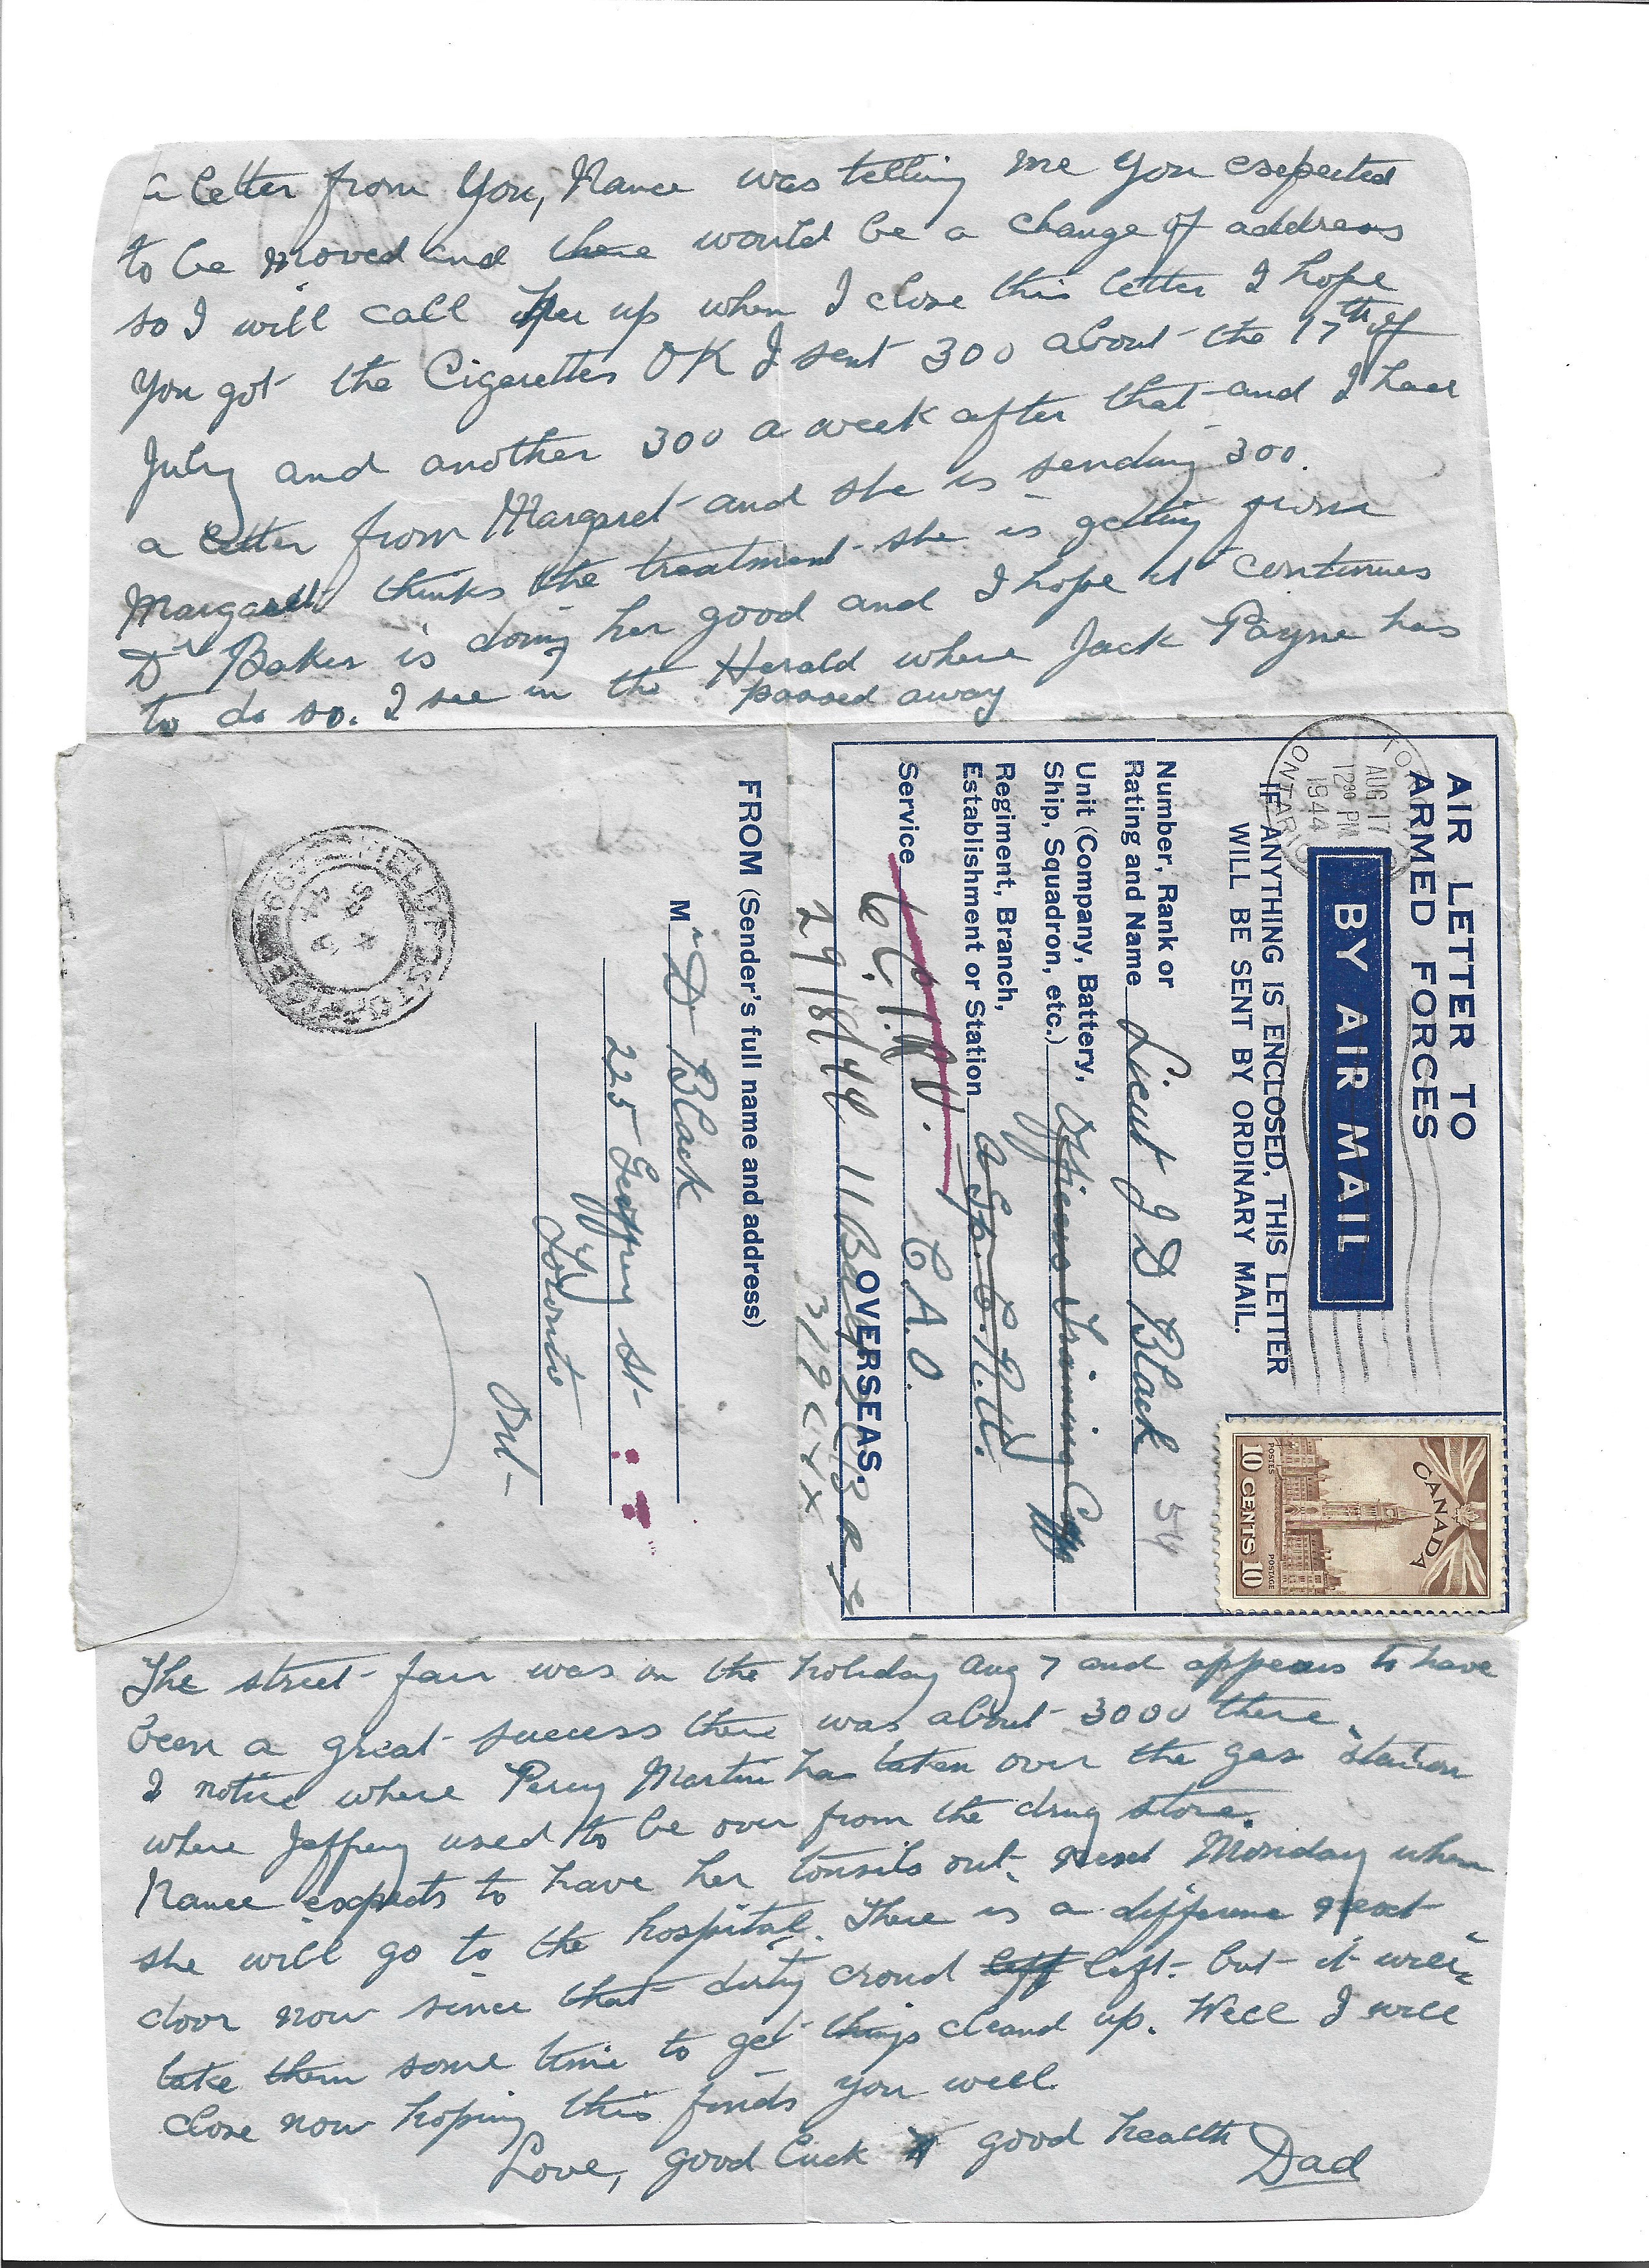 a letter from you, Nance was telling me you exepected
to be moved and there would be a change of address
so I will call her up when I close this letter I hope
you got the Cigerettes OK I sent 300 about the 17th of
July and another 300 a week after that and I hear
a letter from Margaret and she is sending 300.
Margaret thinks the treatment she is getting from
Dr Baker is doing her good and I hope it continues
to do so. I see in the Herald where Jack Payne has
passed away
AIR LETTER TO
ARMED FORCES
BY AIR MAIL
IF ANYTHING IS ENCLOSED, THIS LETTER
WILL BE SENT BY ORDINARY MAIL.
TORONTO
AUG 17
12 30 PM
1944
ONTARIO
CANADA
POSTES POSTAGE
10 CENTS 10
Number, Rank or
Rating and Name Lieut J D Black
54
Unit (Company, Battery,
Ship, Squadron, etc.) Officers Training Coy
Regiment, Branch,
Establishment or Station
C.R.U.
Service C.A.O.
OVERSEAS.
29/8/44 11
FROM (Sender's full name and address)
Mr D Black
225 Geoffrey St
Toronto
Ont
FIELD POST OFFICE
The street fair was on the holiday Aug 7 and appears to have
been a great success there was about 3000 there.
I notice where Percy Martin has taken over the gas station
where Jeffery used to be over from the drug store.
Nance expects to have her tonsils out, next Monday when
she will go to the hospital. There is a difference next
door now since that dirty croud left left but it will
take them some time to get things cleand up. Well I will
close now hoping this finds you well
Love, good luck & good health Dad